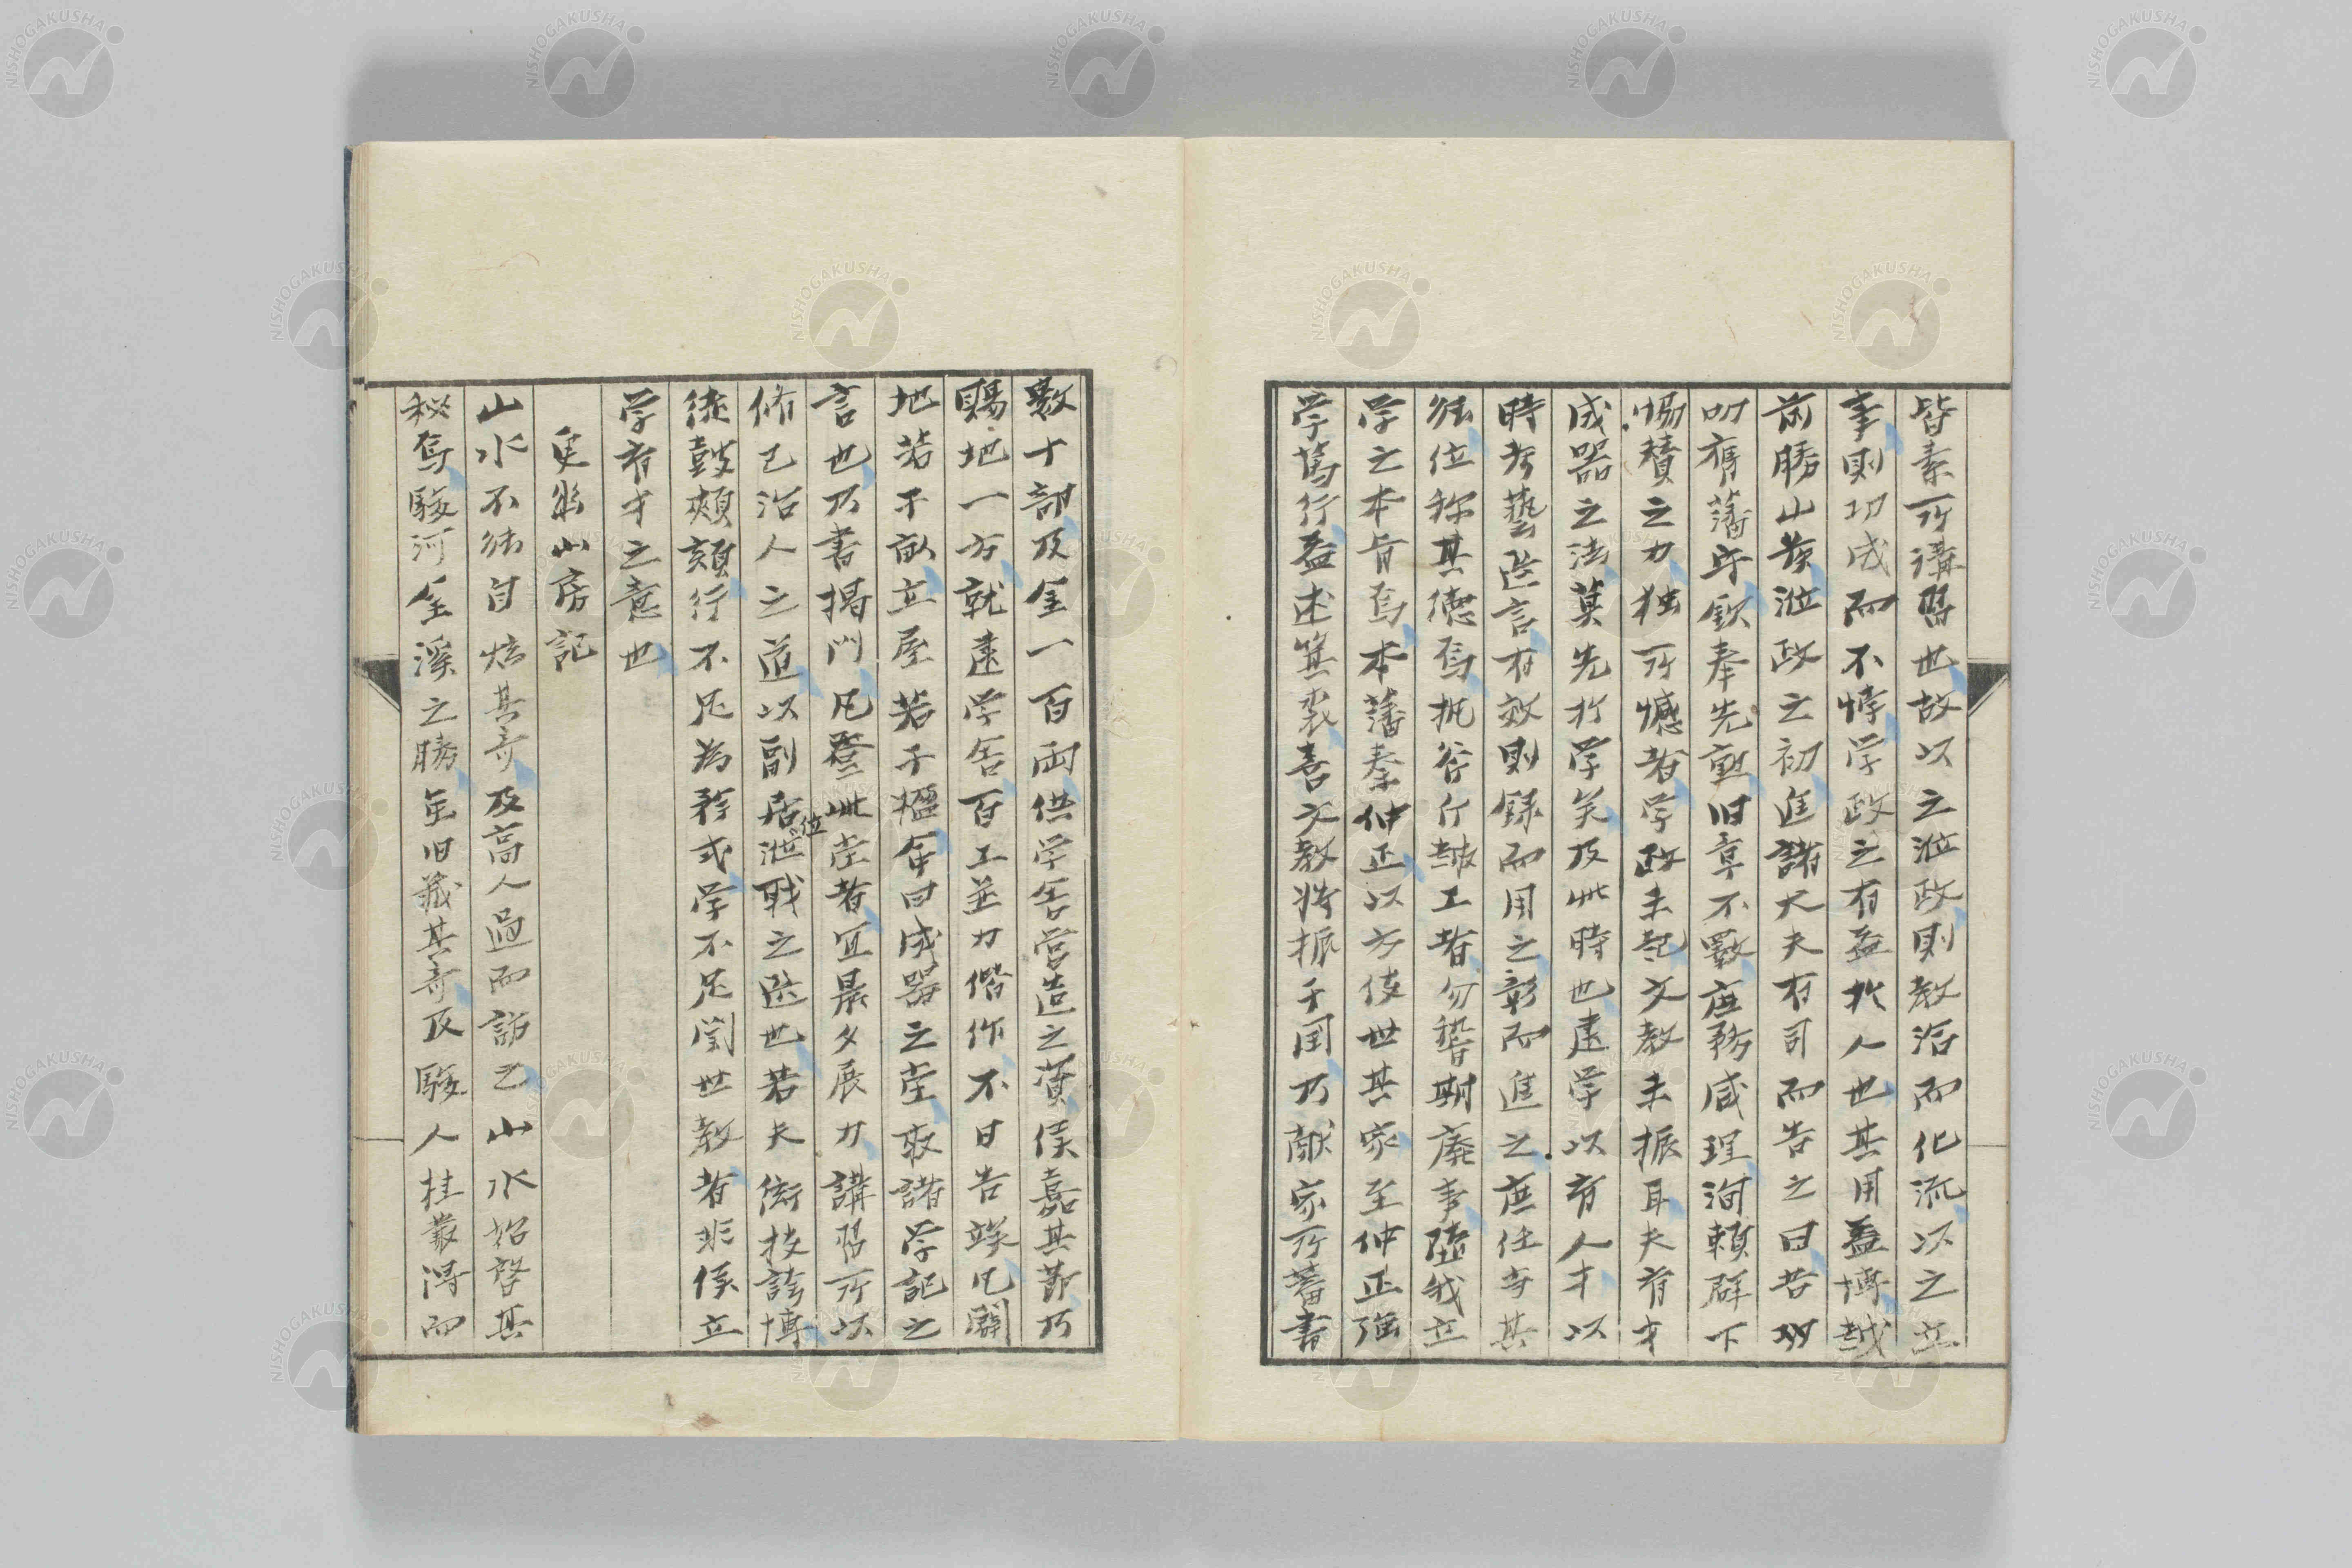 皆素所講習也故以之涖政則教治而化流以之立
事則功成而不悖学政之有益於人也其用益博越
前勝山侯涖政之初進諸大夫有司而告之曰昔功
叨膺藩守欽奉先勲旧章不斁庶務咸理洵頼群下
協賛之力独所憾者学政未起文教未振耳夫有才
成器之法莫先於学矣及此時也建学以育人才以
時考藝選言有效則録而用之彰而進之庶任守其
職位称其徳焉抚谷斤皷工者勿愆期廃事隳我立
学之本旨焉本藩秦仲正以方伎世其家至仲正強
学篤行益述箕裘喜文教将振于国乃献家所蓄書
數十部及金一百両供学舎営造之資侯嘉其節乃
賜地一方就建学舎百工並力偕作不日告竣凡闢
地若干畝立屋若干楹命曰成器之堂取諸学記之
言也乃書掲門凡登此堂者宜晨夕展力講習所以
脩己治人之道以副居位涖戢之選也若夫衒技誇博
徒鼓頰頷行不足為務式学不足闡世教者非侯立
学育才之意也
山房記
山水不能自炫其奇及高人過而訪之山水招啓其
秘焉駿河金渓之勝旧蔵其奇及駿人桂叢得而
NISHOGAKUSHA